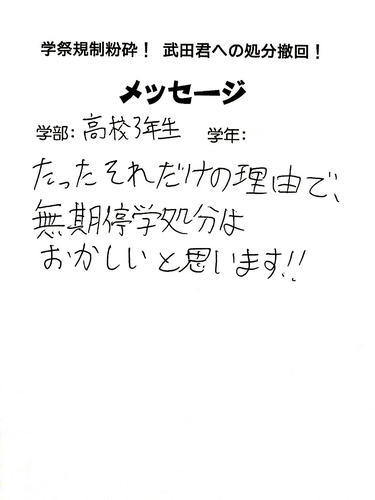 学祭規制粉砕！ 武田君への処分撤回！
メッセージ
学部：高校3年生 学年：
たったそれだけの理由で、
無期停学処分は
おかしいと思います!!